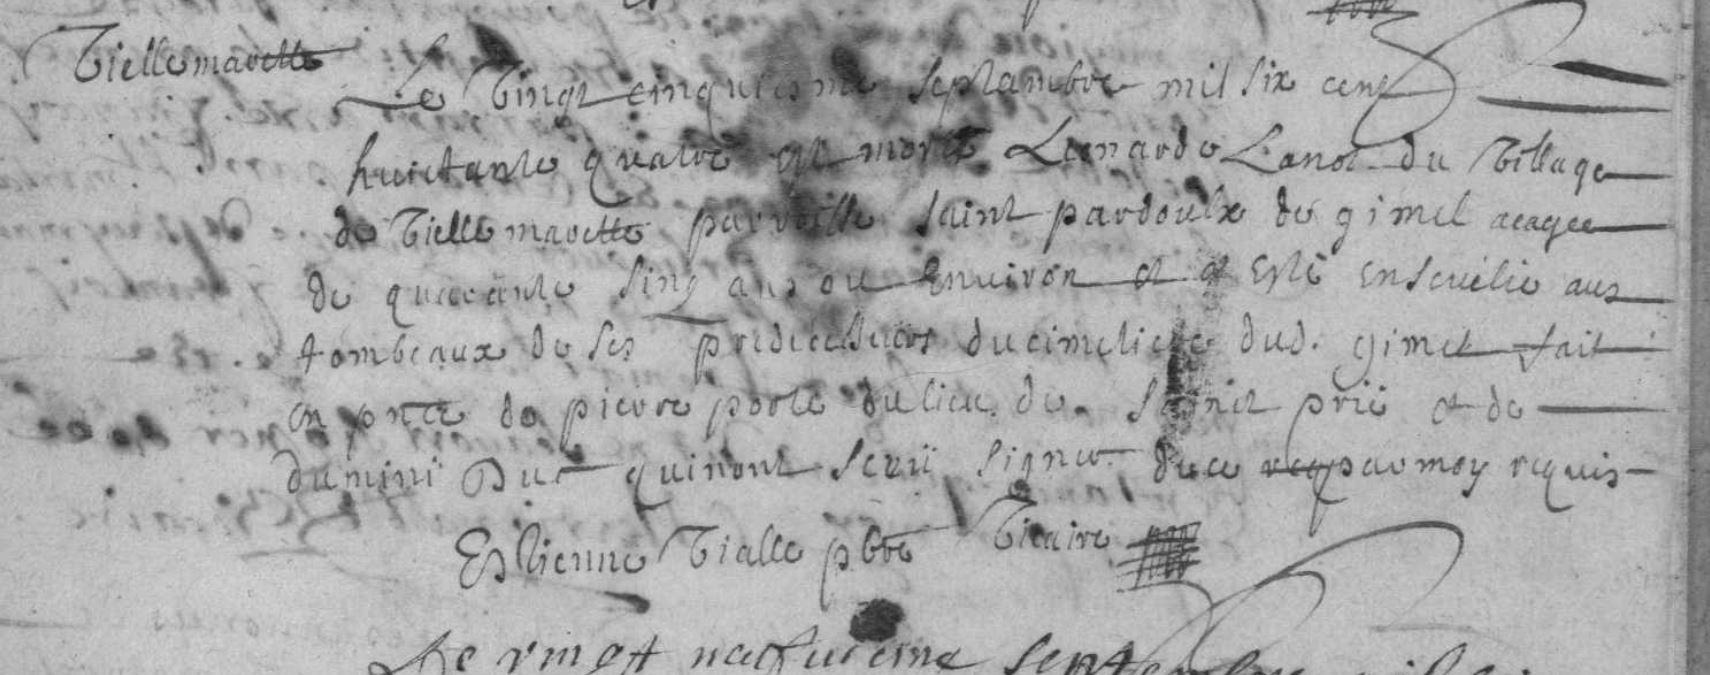 Viellemarette
Le vingt cinquiesme septambre mil six cens
huictante quatre est morte Lienarde Lanot du village
de viellemarette parroisse saint pardoulx de gimel aeagee
de quarante sinq ans ou environ et at esté ensevelie aus
tombeaux de ses prediecesseurs du cimetiere dud. gimel fait
en pnce de pierre porte du lieu de Sainct priē et de
dumini Duc qui n'ont sceu signer de ce par moy requis
Estienne Vialle pbre Vicaire
Le vingt neufvieme septembre mil six